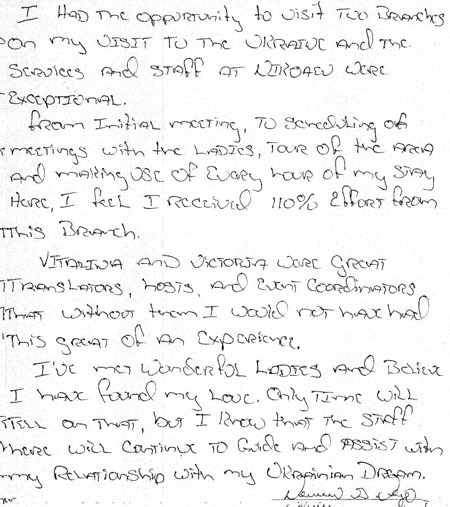 I HAD THE opportunity to visit TWO BRANCHES
on my VISIT TO THE UKRAINE AND THE
SERVICES AND STAFF AT NIKOAEV WERE
EXCEPTIONAL.
From Initial meeting, TO Scheduling of
meetings with the LADIES, TOUR of the AREA
AND making USE of Every hour of my STAY
HERE, I feel I RECEIVED 110% Effort from
This BRANCH.
VITALINA AND VICTORIA WERE GREAT
TRANSLATORS, hosts, AND EVENT COORDINATORS
THAT without them I would not have had
This great of AN EXPERIENCE.
I've met wonderful LADIES AND Believe
I have found my Love. Only Time will
TELL on THAT, but I know that the STAFF
there will Continue TO Guide AND ASSIST with
my Relationship with my Ukrainian Dream.